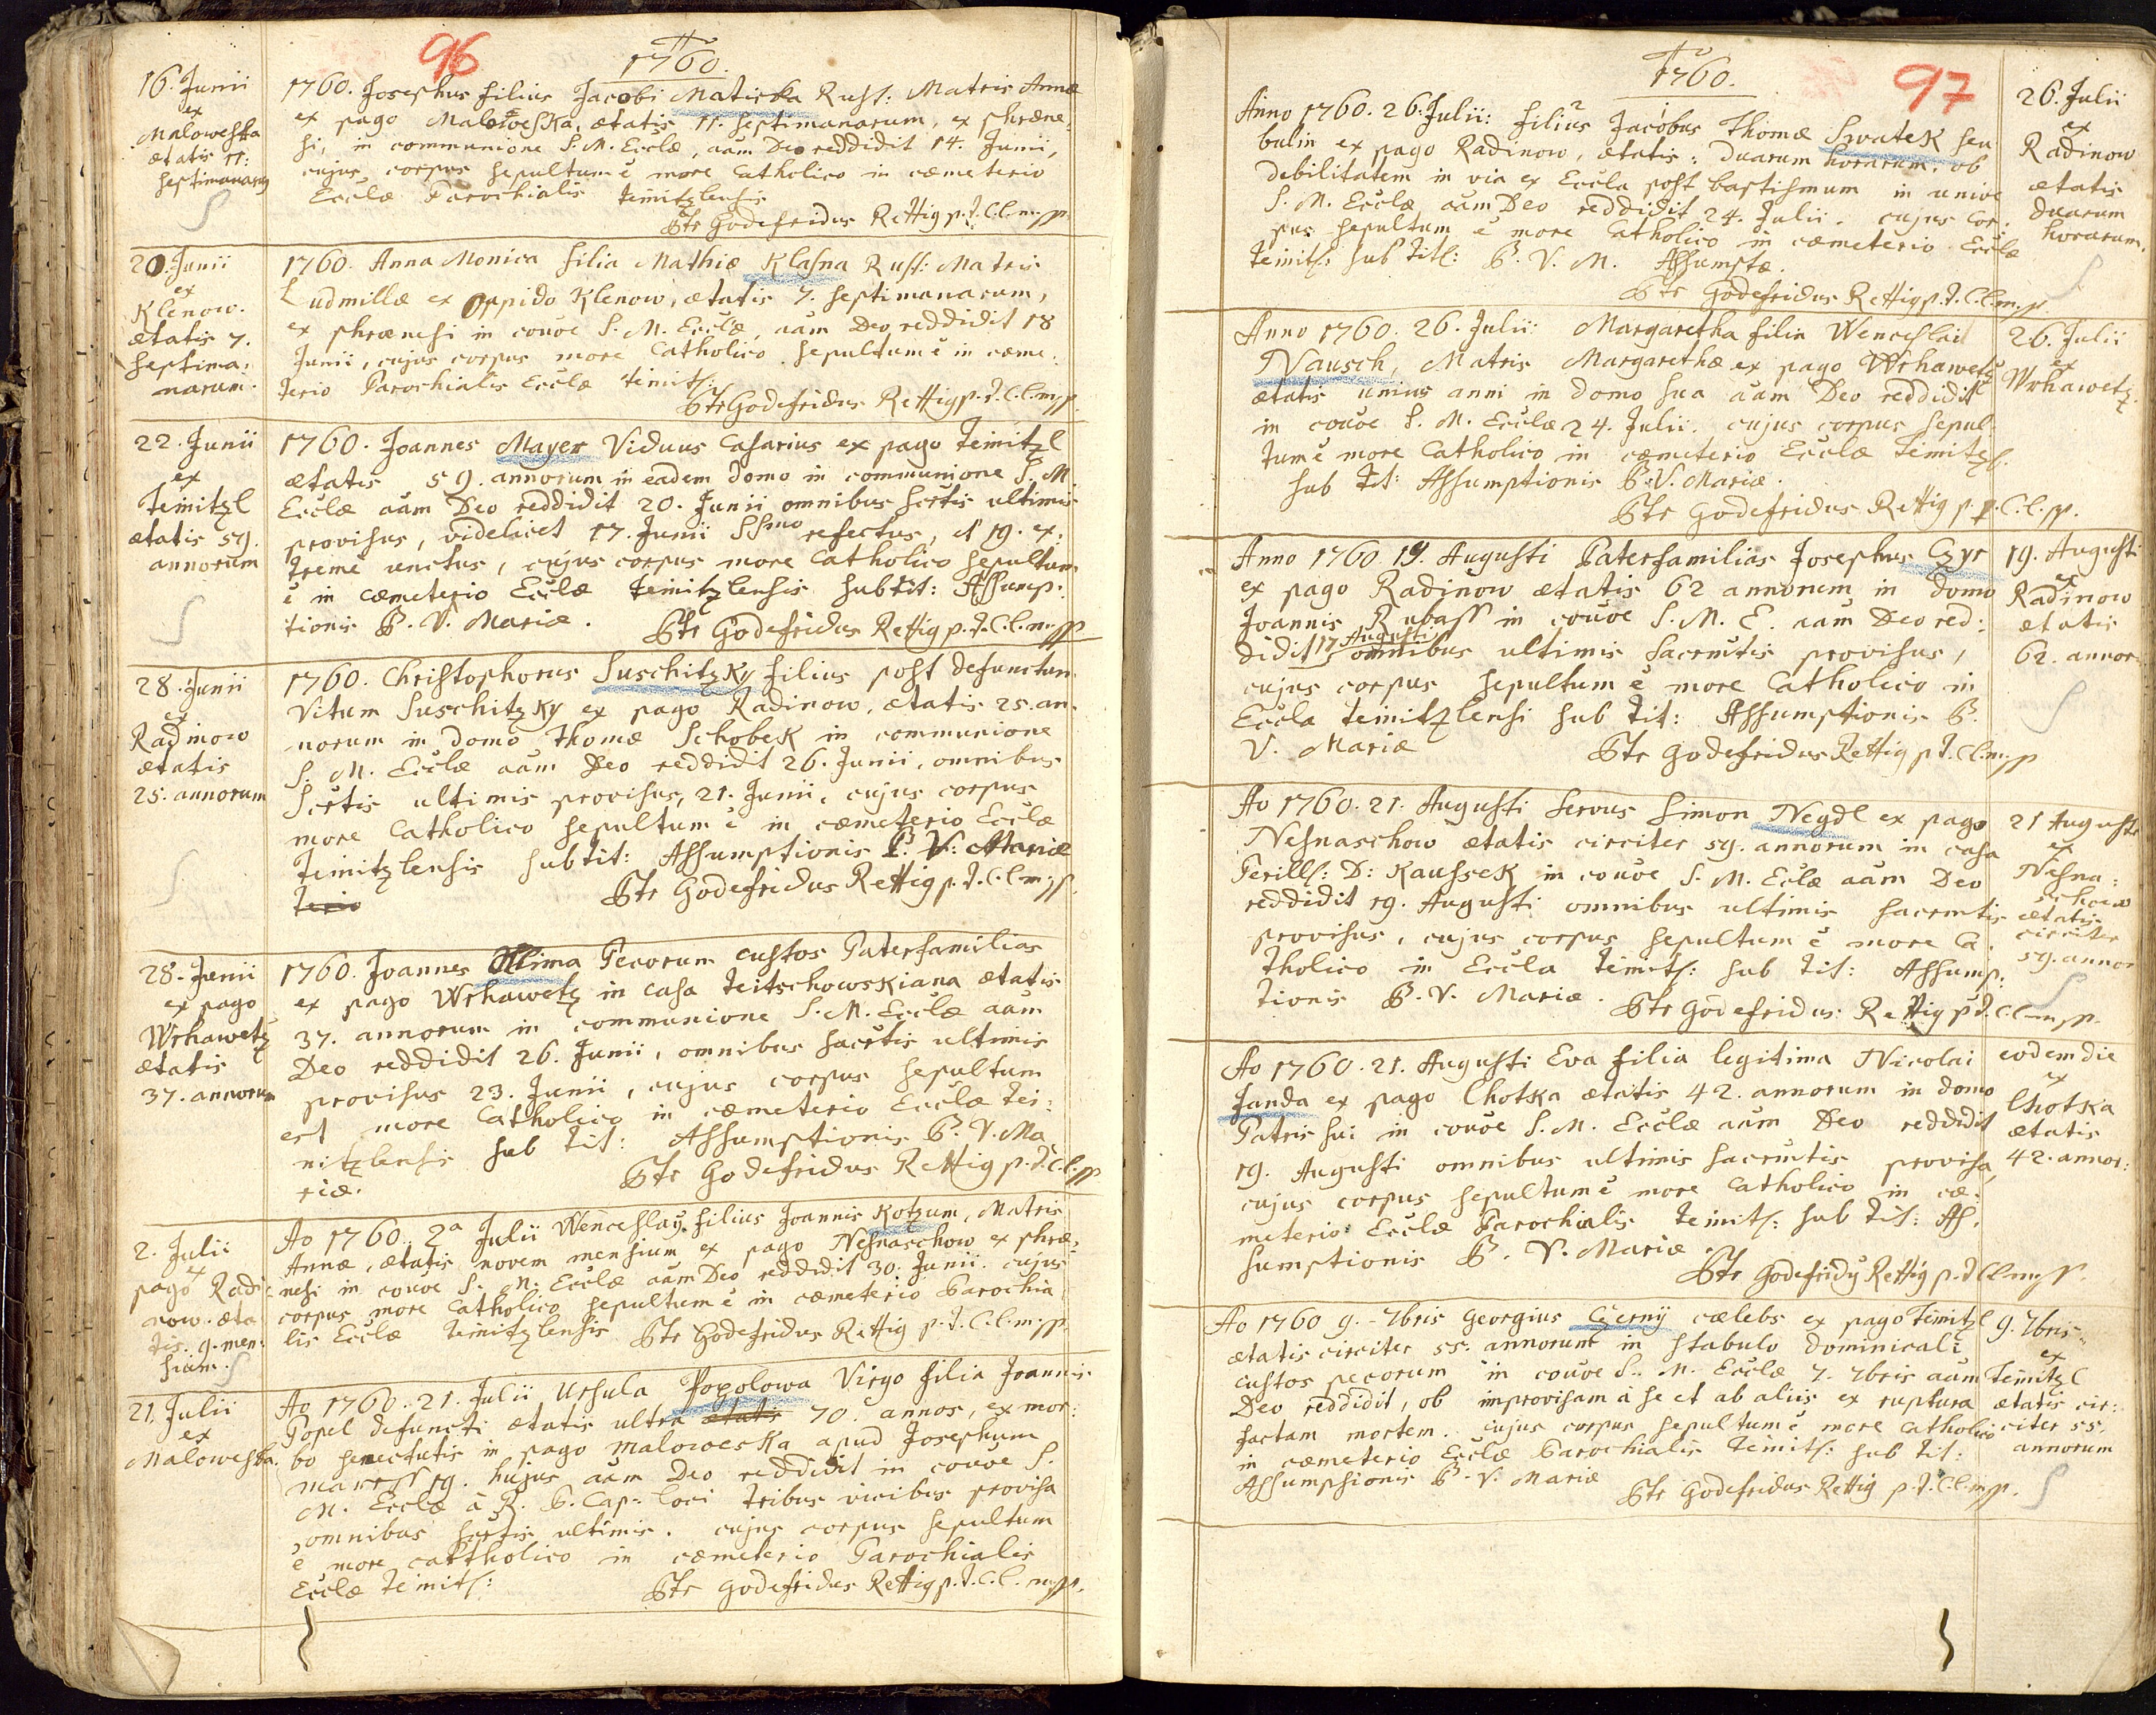 96
1760.
16. Junii
ex
Maloweska
ætatis 11:
septimanarum
1760. Josephus filius Jacobi Matiska Rust: Matris Annæ
ex pago Maloweska, ætatis 11. septimanarum, ex phræne
si, in communione S. M. Ecclæ, aam Deo reddidit 14. Junii,
cujus corpus sepultum ē more Catholico in cæmeterio
Ecclæ Parochialis Teinitzlensis
Ptr Godefridus Rettig p. t. C. l. m. pp.
20. Junii
ex
Klenow.
ætatis 7.
septima:
narum.
1760. Anna Monica filia Mathiæ Klasna Rust: Matris
Ludmillæ ex oppido Klenow, ætatis 7. septimanarum,
ex phrænesi in couoe S. M. Ecclæ, aam Deo reddidit 18
Junii, cujus corpus more Catholico sepultum ē in cæme:
terio Parochialis Ecclæ Teinitz:
Ptr Godefridus Rettig p. t. C. l. m. pp.
22. Junii
ex
Teinitzl
ætatis 59.
annorum
1760. Joannes Mayer Viduus Casarius ex pago Teinitzl
ætatis 59. annorum in eadem domo in communione S. M.
Ecclæ aam Deo reddidit 20. Junii omnibus scrtis ultimis
provisus, videlicet 17. Junii SSmo refectus, et 19. ex:
treme unctus, cujus corpus more Catholico sepultum
ē in cæmeterio Ecclæ Teinitzlensis sub tit: Assump:
tionis B. V. Mariæ.
Ptr Godefridus Rettig p. t. C. l. m. pp
28. Junii
ex
Radinow
ætatis
25. annorum
1760. Christophorus Suschitzky filius post defunctum
Vitum Suschitzky ex pago Radinow, ætatis 25. an
norum in domo Thomæ Schobek in communione
S. M. Ecclæ aam Deo reddidit 26. Junii, omnibus
Scrtis ultimis provisus, 21. Junii, cujus corpus
more Catholico sepultum ē in cæmeterio Ecclæ
Teinitzlensis sub tit: Assumptionis B. V. Mariæ
terio
Ptr Godefridus Rettig p. t. C. l. m. pp.
28. Junii
ex pago
Wrhawetz
ætatis
37. annorum
1760. Joannes Klima Pecorum custos Paterfamilias
ex pago Wrhawetz in casa Teitschowskiana ætatis
37. annorum in communione S. M. Ecclæ aam
Deo reddidit 26. Junii, omnibus sacrtis ultimis
provisus 23. Junii, cujus corpus sepultum
est more Catholico in cæmeterio Ecclæ Tei:
nitzlensis sub tit: Assumptionis B. V. Ma
riæ.
Ptr Godefridus Rettig p. t. C. l. pp
2. Julii
ex
pago Radi:
now. æta
tis. 9. men:
sium.
Ao 1760. 2a Julii Wenceslaus filius Joannis Kotzum, Matris
Annæ, ætatis novem mensium ex pago Nesnaschow ex phræ:
nesi in couoe S. M. Ecclæ aam Deo reddidit 30. Junii. cujus
corpus more Catholico sepultum ē in cæmeterio Parochia
lis Ecclæ Teinitzlensis Ptr Godefridus Rettig p. t. C. l. m. pp.
21. Julii
ex
Maloweska.
Ao 1760. 21. Julii Ursula Popolowa Virgo filia Joannis
Popel defuncti ætatis ultra ætatis 70. annos, ex mor:
bo senectutis in pago Maloweska apud Josephum
Maress 19. hujus aam Deo reddidit in couoe S.
M. Ecclæ à R. P. Cap: loci tribus vicibus provisa
omnibus scrtis ultimis. cujus corpus sepultum
ē more cattholico in cæmeterio Parochialis
Ecclæ Teinitz:
Ptr Godefridus Rettig p. t. C. l. m. pp.
1760.
97
Anno 1760. 26. Julii: filius Jacobus Thomæ Swatek seu
bulin ex pago Radinow, ætatis: duarum horarum, ob
debilitatem in via ex Eccla post baptismum in unioe
S. M. Ecclæ aam Deo reddidit 24. Julii. cujus cor:
pus sepultum ē more Catholico in cæmeterio Ecclæ
Teinitz: sub titl: B. V. M. Assumptæ.
Ptr Godefridus Rettig p. t. C. l. m. p.
26. Julii
ex
Radinow
ætatis
duarum
horarum.
Anno 1760. 26. Julii: Margaretha filia Wenceslai
Nausch, Matris Margarethæ ex pago Wrhawetz
ætatis unius anni in domo sua aam Deo reddidit
in couoe S. M. Ecclæ 24. Julii. cujus corpus sepul
tum ē more Catholico in cæmeterio Ecclæ Teinitzl.
sub tit: Assumptionis B. V. Mariæ.
Ptr Godefridus Rettig p. t. C. l. pp.
26. Julii
ex
Wrhawetz.
Anno 1760 19. Augusti Paterfamilias Josephus Czyr
ex pago Radinow ætatis 62 annorum in domo
Joannis Rubass in couoe S. M. E. aam Deo red:
didit 17 Augusti omnibus ultimis sacrmtis provisus,
cujus corpus sepultum ē more Catholico in
Eccla Teinitzlensi sub tit: Assumptionis B.
V. Mariæ
Ptr Godefridus Rettig p t. C. l. m. pp
19. Augusti
ex
Radinow
ætatis
62. annor
Ao 1760. 21. Augusti servus Simon Negdl ex pago
Nesnaschow ætatis circiter 59. annorum in casa
Perills: D: Kaussek in couoe S. M. Eclæ aam Deo
reddidit 19. Augusti omnibus ultimis sacrmtis
provisus, cujus corpus sepultum ē more Ca:
tholico in Eccla Teinitz: sub tit: Assump:
tionis B. V. Mariæ.
Ptr Godefridus Rettig p t. C. l. m. pp.
21 Augusti
ex
Nesna:
schow
ætatis
circiter
59. annor
Ao 1760. 21. Augusti Eva filia legitima Nicolai
Janda ex pago Chotska ætatis 42. annorum in domo
Patris sui in couoe S. M. Ecclæ aam Deo reddidit
19. Augusti omnibus ultimis sacrmtis provisa,
cujus corpus sepultum ē more Catholico in cæ:
meterio Ecclæ Parochialis Teinitz: sub tit: As:
sumptionis B. V. Mariæ.
Ptr Godefridus Rettig p. t C. l. m. pp.
eodem die
ex
Chotska
ætatis
42. annor:
Ao 1760 9. 7bris Georgius Czerny cælebs ex pago Teinitzl
ætatis circiter 55. annorum in stabulo dominicali
custos pecorum in couoe S. M. Ecclæ 7. 7bris aam
Deo reddidit, ob improvisam à se et ab aliis ex ruptura
factam mortem. cujus corpus sepultum ē more Catholico
in cæmeterio Ecclæ Parochialis Teinitz: sub tit:
Assumpsionis B. V. Mariæ
Ptr Godefridus Rettig p. t. C. l. m. pp.
9. 7bris
ex
Teinitzl
ætatis cir:
citer 55.
annorum